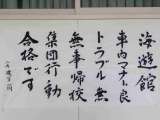 海遊館
車内マナー良
トラブル無
無事帰校
集団行動
合格です